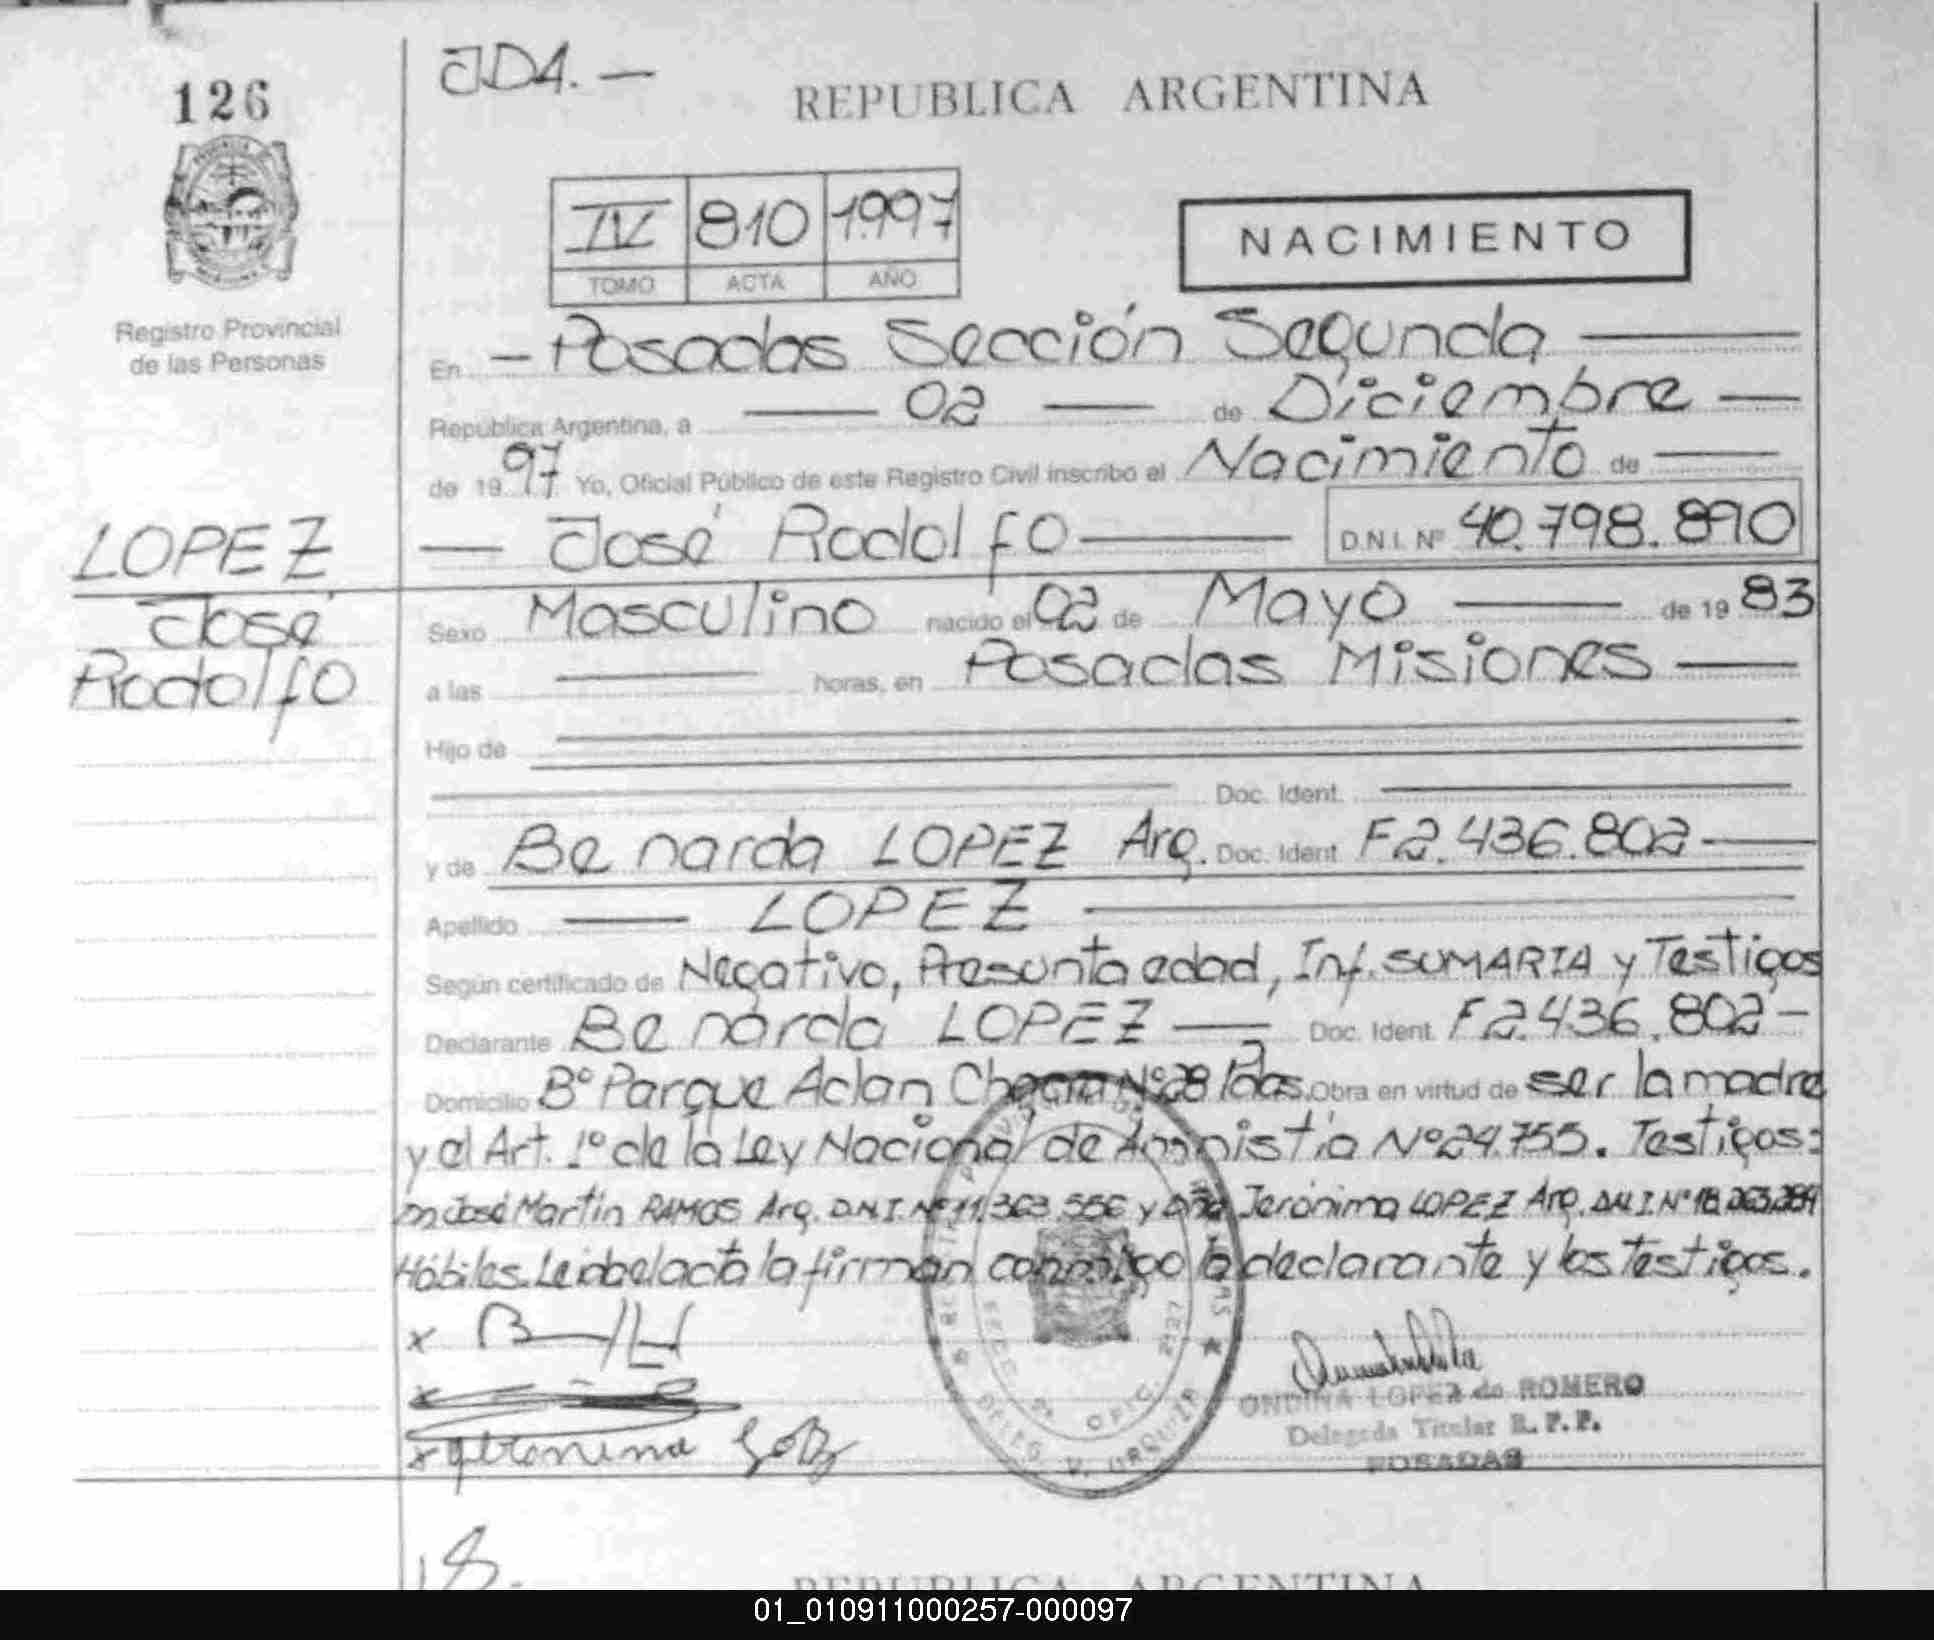 126
JDA.—
REPUBLICA ARGENTINA
IV 810 1.997
TOMO ACTA AÑO
NACIMIENTO
Registro Provincial
de las Personas
En — Posadas Sección Segunda —
República Argentina, a — 02 — de Diciembre —
de 19 97 Yo, Oficial Público de este Registro Civil inscribo el Nacimiento de —
LOPEZ — José Rodolfo — D.N.I. Nº 40.798.890
José
Rodolfo
Sexo Masculino nacido el 02 de Mayo — de 19 83
a las — horas, en Posadas Misiones —
Hijo de
Doc. Ident.
y de Benarda LOPEZ Arg. Doc. Ident. F2.436.802 —
Apellido — LOPEZ —
Según certificado de Negativo, Presunta edad, Inf. SUMARIA y Testigos
Declarante Benarda LOPEZ — Doc. Ident. F2.436.802 —
Domicilio Bº Parque Adan Nº28 Pdas. Obra en virtud de ser la madre
y el Art. 1º de la Ley Nacional de Amnistía Nº24.755. Testigos:
José Martin RAMOS Arg. D.N.I. Nº 11.363.556 y Jerónima LOPEZ Arg. D.N.I. Nº
Hábiles. Leída el acta la firman conmigo la declarante y los testigos.
x
x
x Jeronima
ONDINA LOPEZ de ROMERO
Delegada Titular R. P. P.
POSADAS
REPUBLICA ARGENTINA
01_010911000257-000097